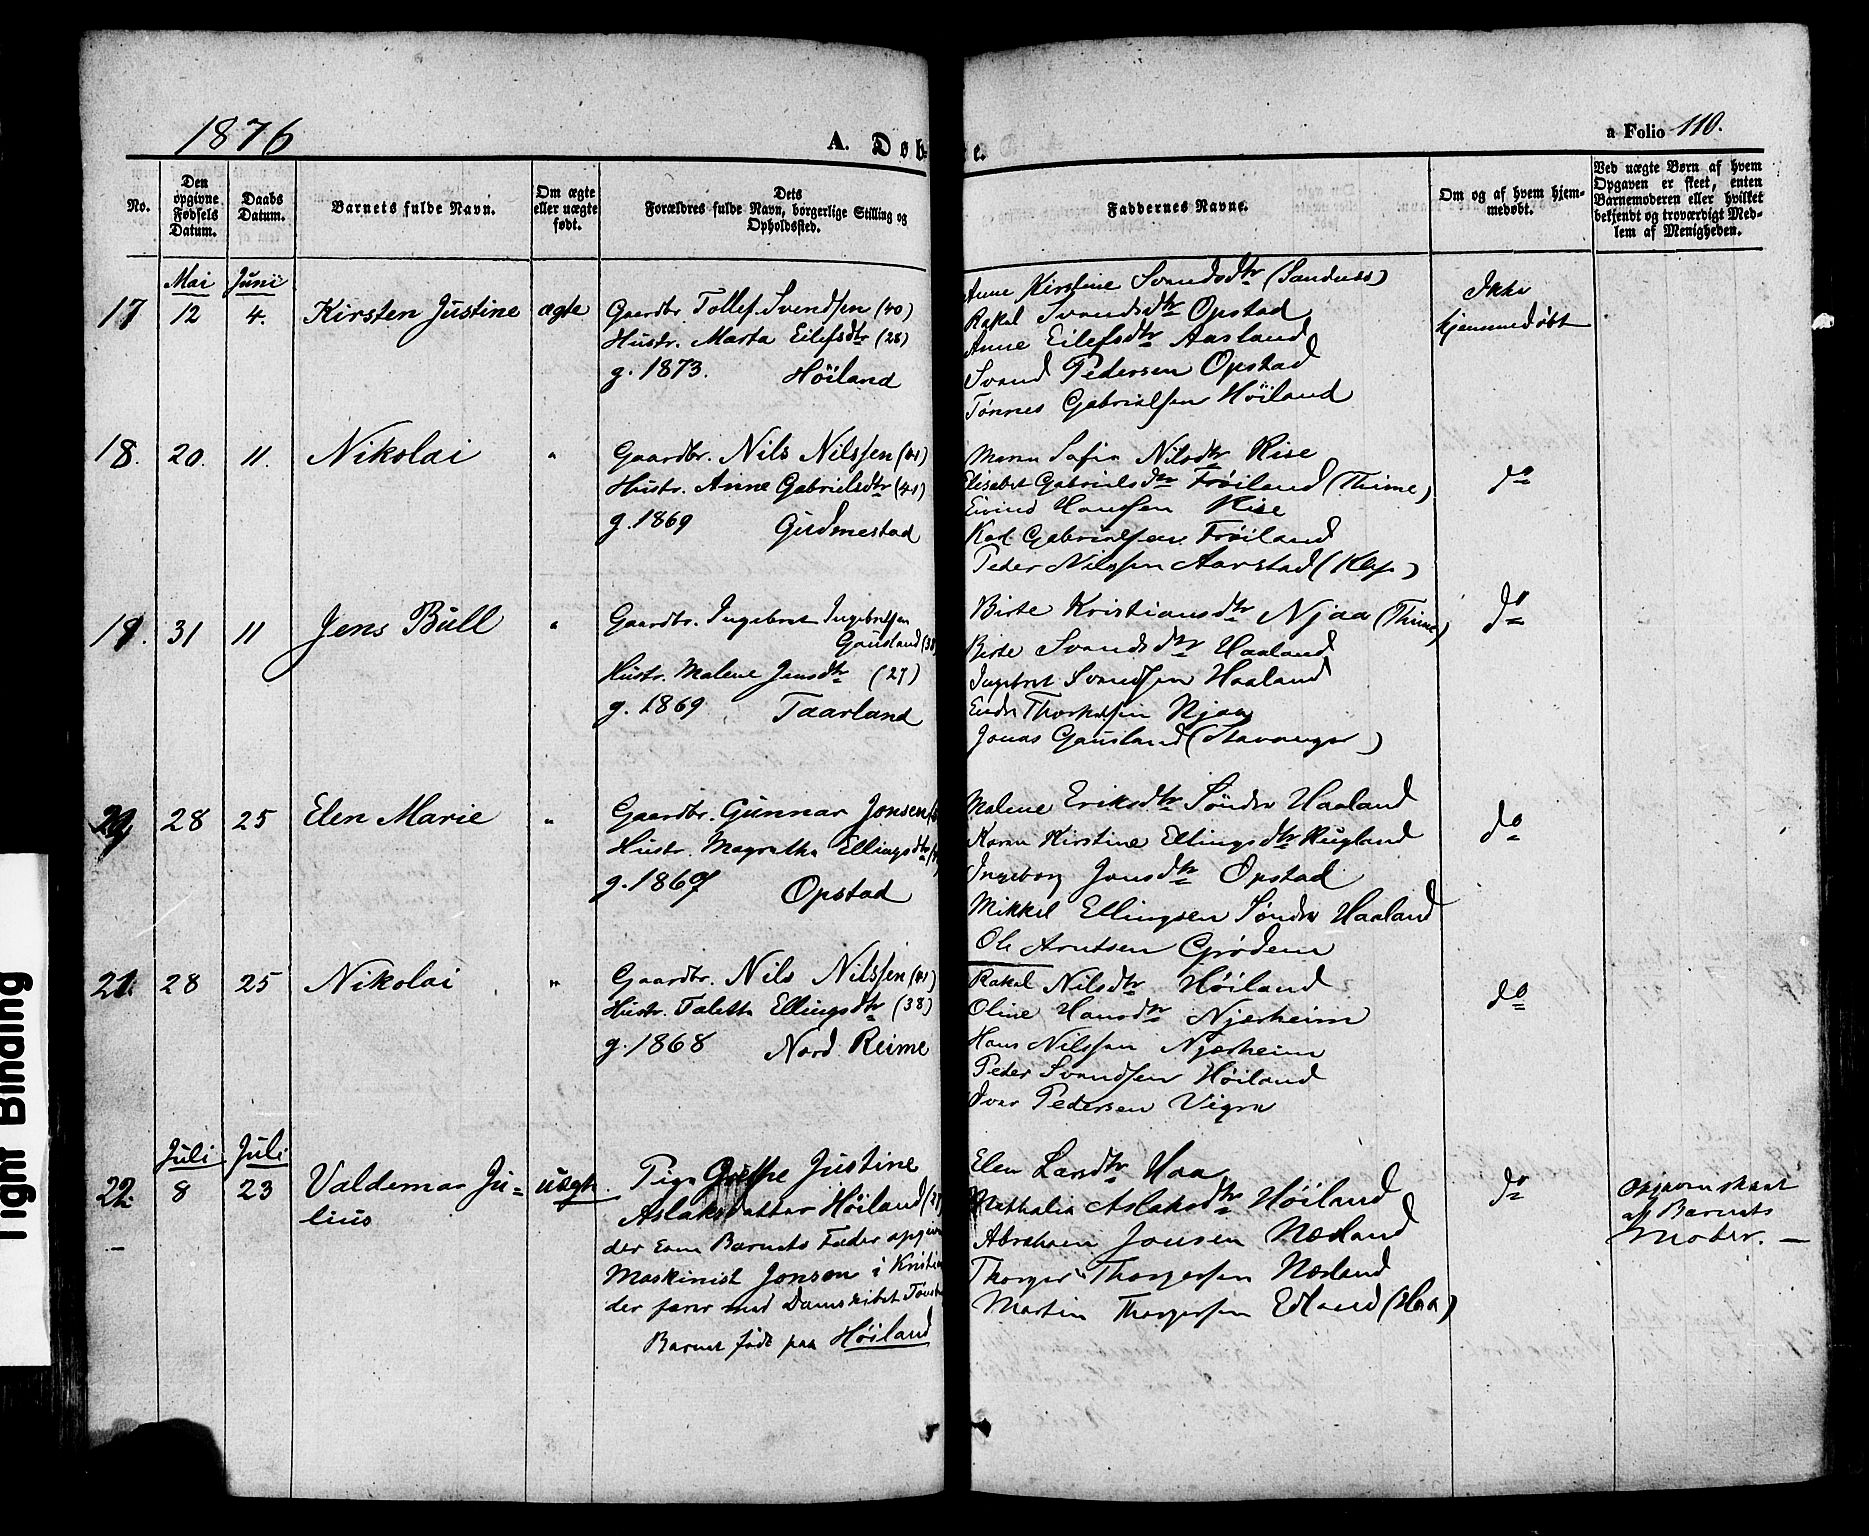 1876
A. Døb-
te.
a Folio 110.
No.
Den opgivne Fødsels Datum.
Daabs Datum.
Barnets fulde Navn.
Om ægte eller uægte født.
Dets Forældres fulde Navn, borgerlige Stilling og Opholdssted.
Faddernes Navne.
Om og af hvem hjemmedøbt.
Ved uægte Børn af hvem Opgaven er skeet, enten Barnemoderen eller hvilket bekjendt og troværdigt Medlem af Menigheden.
Mai Juni
17 12 4. Kirsten Justine ægte
Gaardbr. Tollef Svendsen (40)
Hustr. Marta Eilefsdtr (28)
g. 1873. Höiland
Anne Kirstine Svendsdtr (Sandnes)
Rakel Svendsdtr Opstad
Anne Eilefsdtr Aasland
Svend Pedersen Opstad
Tønnes Gabrielsen Höiland
Ikke
hjemmedøbt
18. 20. 11. Nikolai "
Gaardbr. Nils Nilssen (41)
Hustr. Anne Gabrielsdtr (41)
g. 1869 Gudmestad
Maren Sofie Nilsdtr Rise
Elisabet Gabrielsdtr Frøiland (Thime)
Eivind Hanssen Rise
Karl Gabrielsen Frøiland
Peder Nilssen Aarstad (Klep)
do
19. 31 11 Jens Bull "
Gaardbr. Ingebret Ingebretsen
Gausland (38)
Hustr. Malene Jensdtr (27)
g. 1869 Taarland
Birte Kristiansdtr Njaa (Thime)
Birte Svendsdtr Haaland
Ingebret Svendsen Haaland
Endre Thorkelsen Njaa
Jonas Gausland (Stavanger)
do
20 28 25 Elen Marie "
Gaardbr. Gunnar Jonsen
Hustr. Magrethe Ellingsdtr
g. 1867 Opstad
Malene Eriksdtr Søndre Haaland
Karen Kirstine Ellingsdtr Hugland
Ingeborg Jonsdtr Opstad
Mikkel Ellingsen Søndre Haaland
Ole Arntsen Grødem
do
21. 28 25 Nikolai "
Gaardbr. Nils Nilssen (41)
Hustr. Taletta Ellingsdtr (38)
g. 1868 Nord Reime
Rakel Nilsdtr Höiland
Oline Hansdtr Njærheim
Hans Nilssen Njærheim
Peder Svendsen Höiland
Ivar Pedersen Vigre
do
Juli Juli
22. 8 23 Valdemar Ju-
lius
uægte
Pige Grethe Justine
Aslaksdatter Höiland
der som Barnets Fader opgiver
Maskinist Jonsen i Kristia
der farer med Damskibet
Barnet født paa Höiland
Elen Larsdtr Haa
Nathalie Aslaksdtr Höiland
Abraham Jonsen Nærland
Thorger Thorgersen Nærland
Martin Thorgersen Edland (Haa)
do
Opgaven skeet
af Barnets
Moder. —
Tight Binding